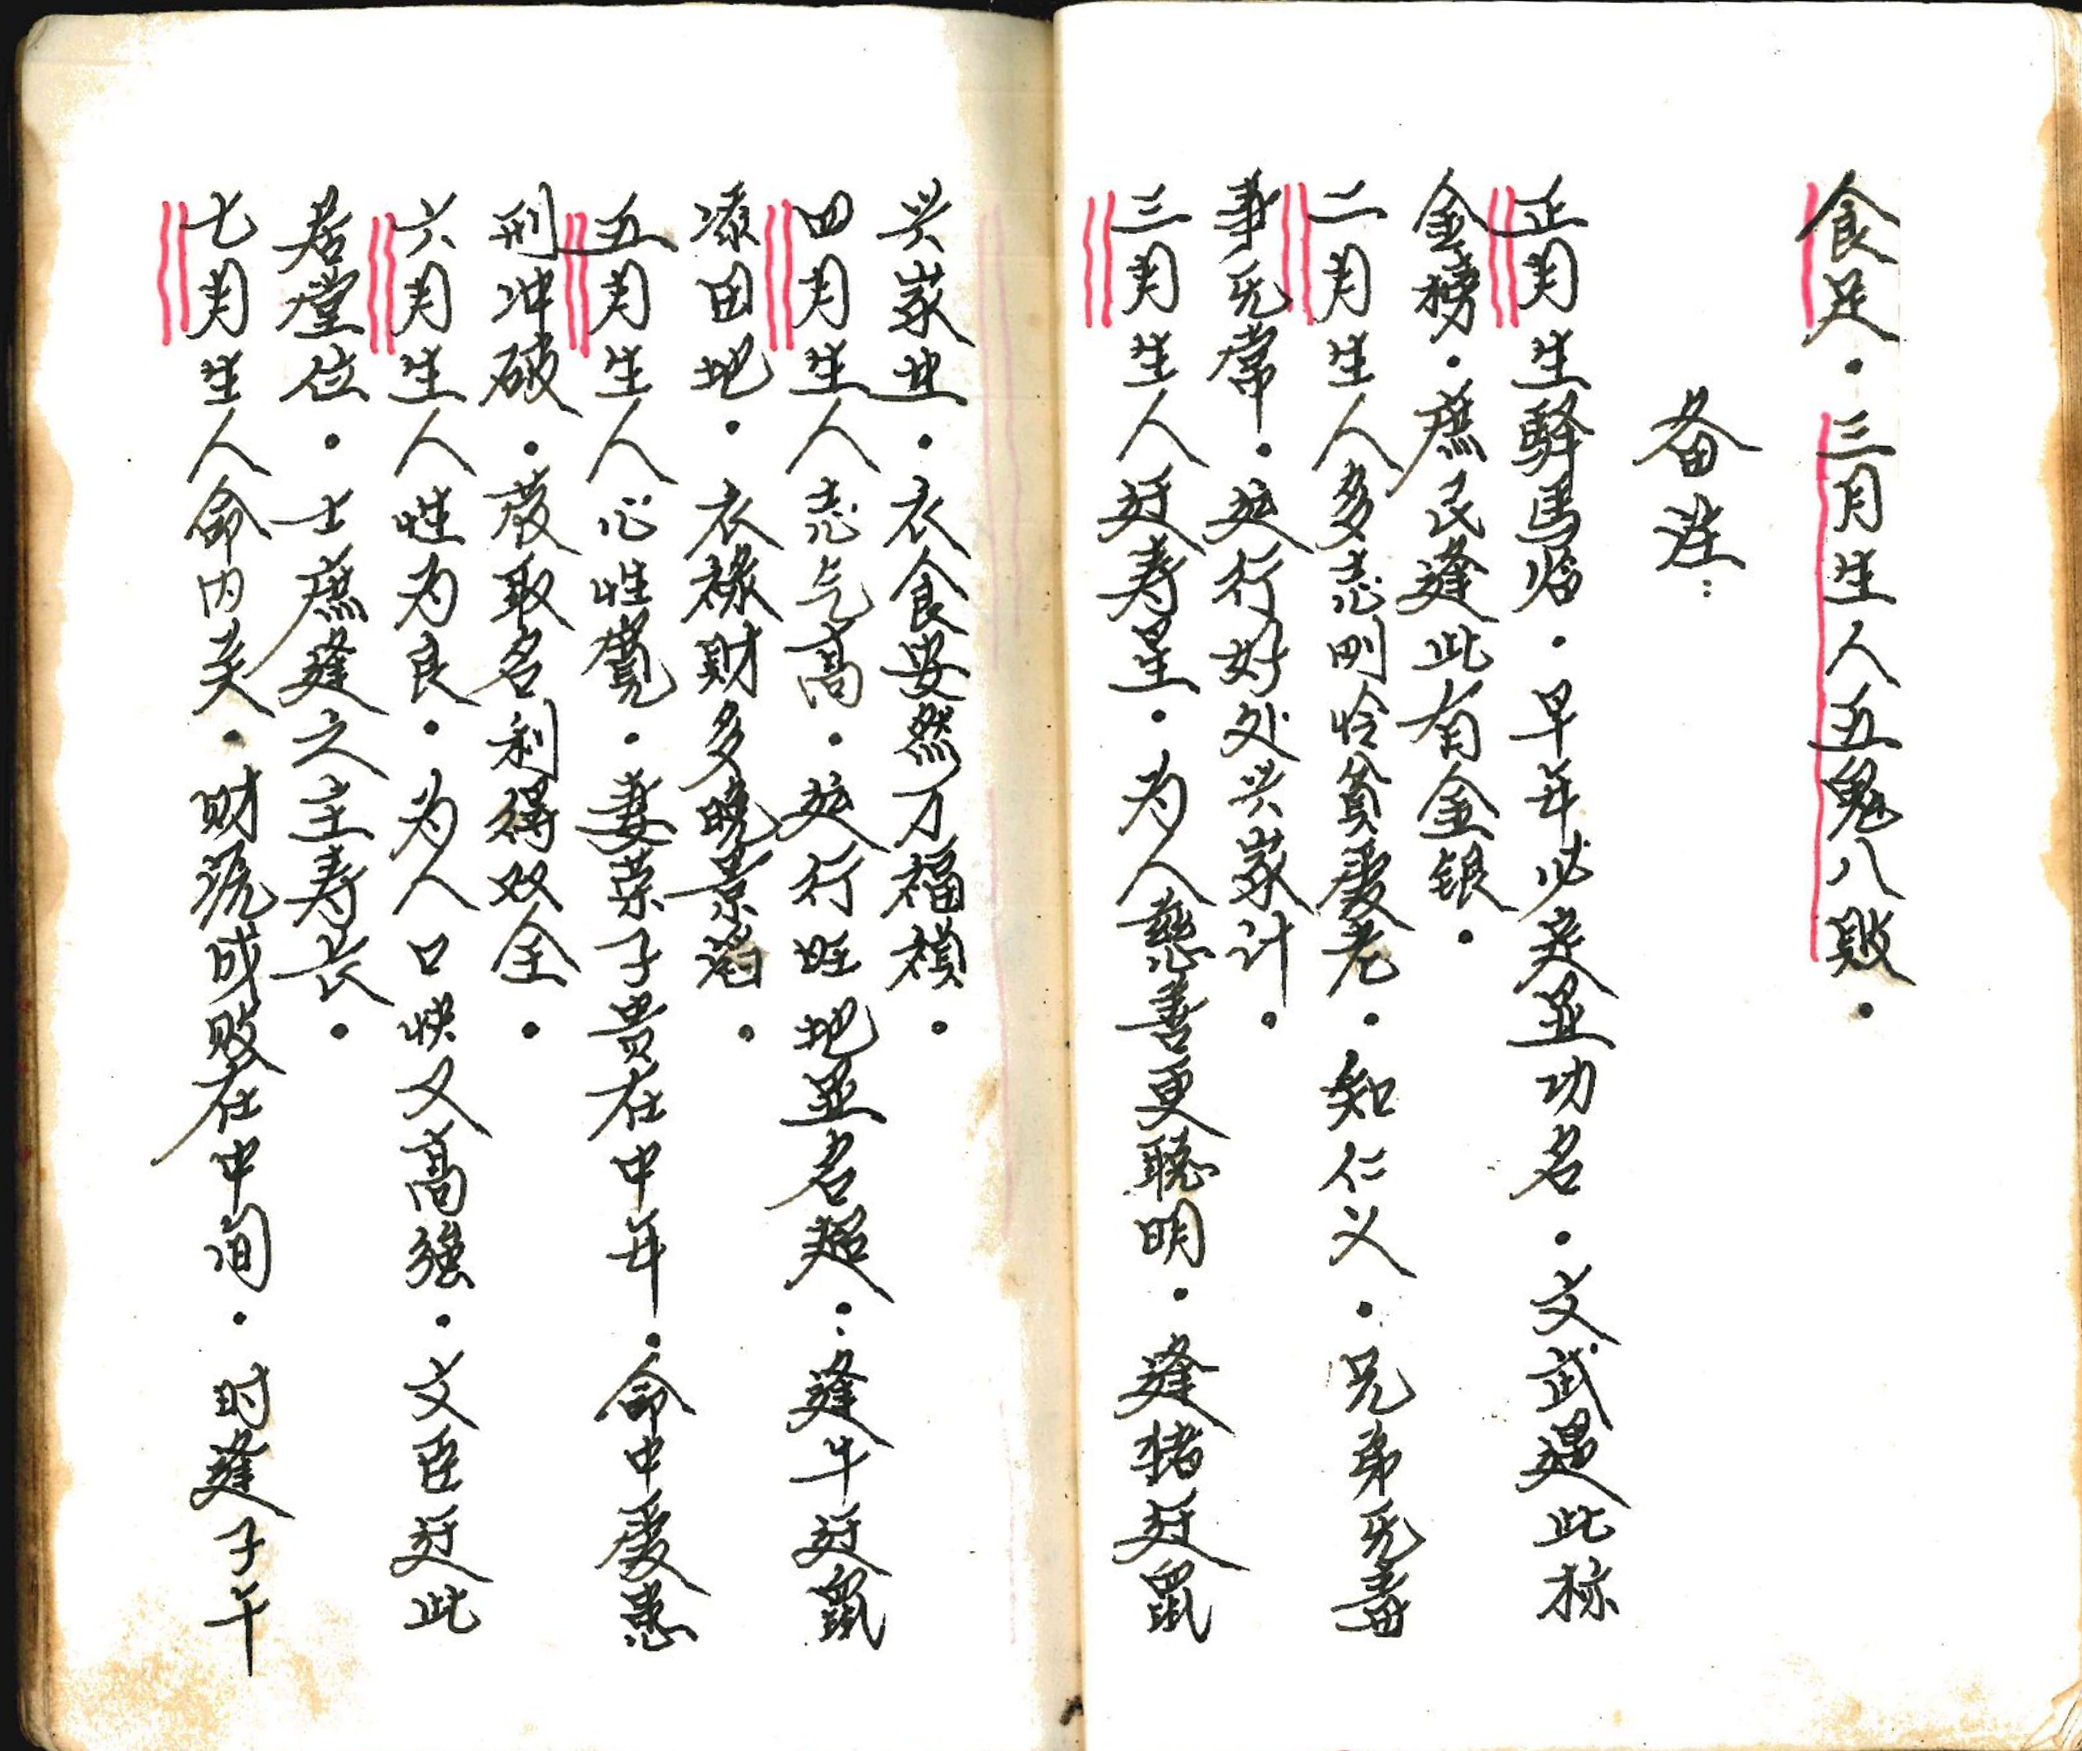 食足．三月生人五鬼八败．
备注：
正月生驿馬临．早年必定显功名．文武遇此标
金榜．庶民逢此有金银．
二月生人多志刚怜貧爱老．知仁义．兄弟无毒
事无常．运行好处兴家计．
三月生人廷寿星．为人慈善更聪明．逢猪廷鼠
兴家业．衣食安然万福禎．
四月生人志气高．运行旺地显名超．逢牛廷鼠
添田地．衣祿财多晚景滔．
五月生人心性寬．妻荣子贵在中年．命中爱患
刑冲破．發取名利得双全．
六月生人性为良．为人口快又高強．文臣廷此
居堂位．士庶逢之主寿长．
七月生人命内关．财源成败在中间．时逢子午